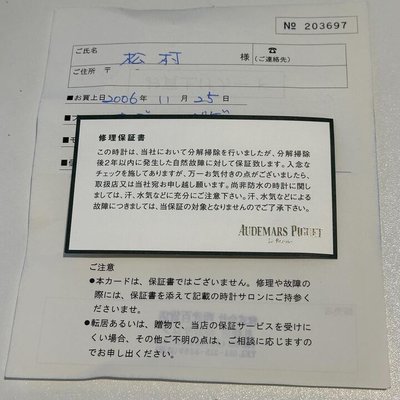 Nº 203697
ご氏名 松村 様 ☎
ご住所 〒 (ご連絡先)
■お買上日 2006年 11月 25日
修理保証書
この時計は、当社において分解掃除を行いましたが、分解掃除
後2年以内に発生した自然故障に対して保証致します。入念な
チェックを施してありますが、万一お気付きの点がございましたら、
取扱店又は当社宛お申し越し願います。尚非防水の時計に関し
ましては、汗、水気などに充分にご注意下さい。汗、水気などによる
故障につきましては、当保証の対象となりませんのでご了承下さい。
AUDEMARS PIGUET
Le Brassus
ご注意
●本カードは、保証書ではございません。修理や故障の
際には、保証書を添えて記載の時計サロンにご持参く
ださいませ。
●転居あるいは、贈物で、当店の保証サービスを受けに
くい場合、その他ご不明の点は、ご相談に応じますの
でお申し出ください。